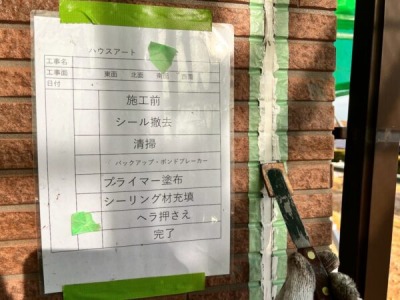 ハウスアート
工事名
工事面 東面 北面 南面 西面
日付
施工前
シール撤去
清掃
バックアップ・ボンドブレーカー
プライマー塗布
シーリング材充填
ヘラ押さえ
完了